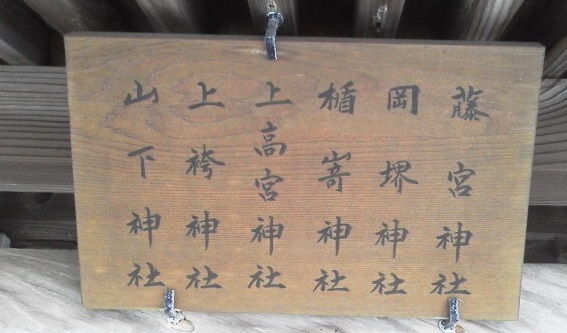 藤宮神社
岡堺神社
楯嵜神社
上高宮神社
上袴神社
山下神社